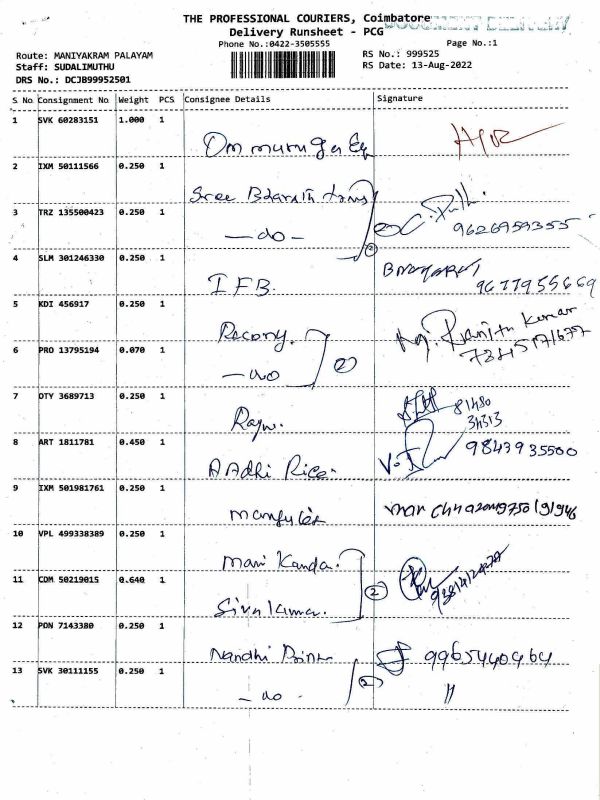 THE PROFESSIONAL COURIERS, Coimbatore
DOCUMENT DELIVERY
Delivery Runsheet - PCG
Phone No.:0422-3505555
Page No.:1
Route: MANIYAKRAM PALAYAM
RS No.: 999525
Staff: SUDALIMUTHU
RS Date: 13-Aug-2022
DRS No.: DCJB99952501
S No Consignment No Weight PCS Consignee Details Signature
1 SVK 60283151 1.000 1
Om muruga
2 IXM 50111566 0.250 1
Sree Bharath
3 TRZ 135500423 0.250 1
9626959355
- do - 2
4 SLM 301246330 0.250 1
IFB 9677955669
5 KDI 456917 0.250 1
Ranjith Kumar
6 PRO 13795194 0.070 1
- do 2
7 OTY 3689713 0.250 1
81480
34313
Raju.
8 ART 1811781 0.450 1
9843935500
AAdhi Rice.
9 IXM 501981761 0.250 1
10 VPL 499338389 0.250 1
Mani Kanda.
11 COM 50219015 0.640 1
2
Siva Kumar.
12 PON 7143380 0.250 1
Nandhi 9965440464
13 SVK 30111155 0.250 1
- do - 2 "